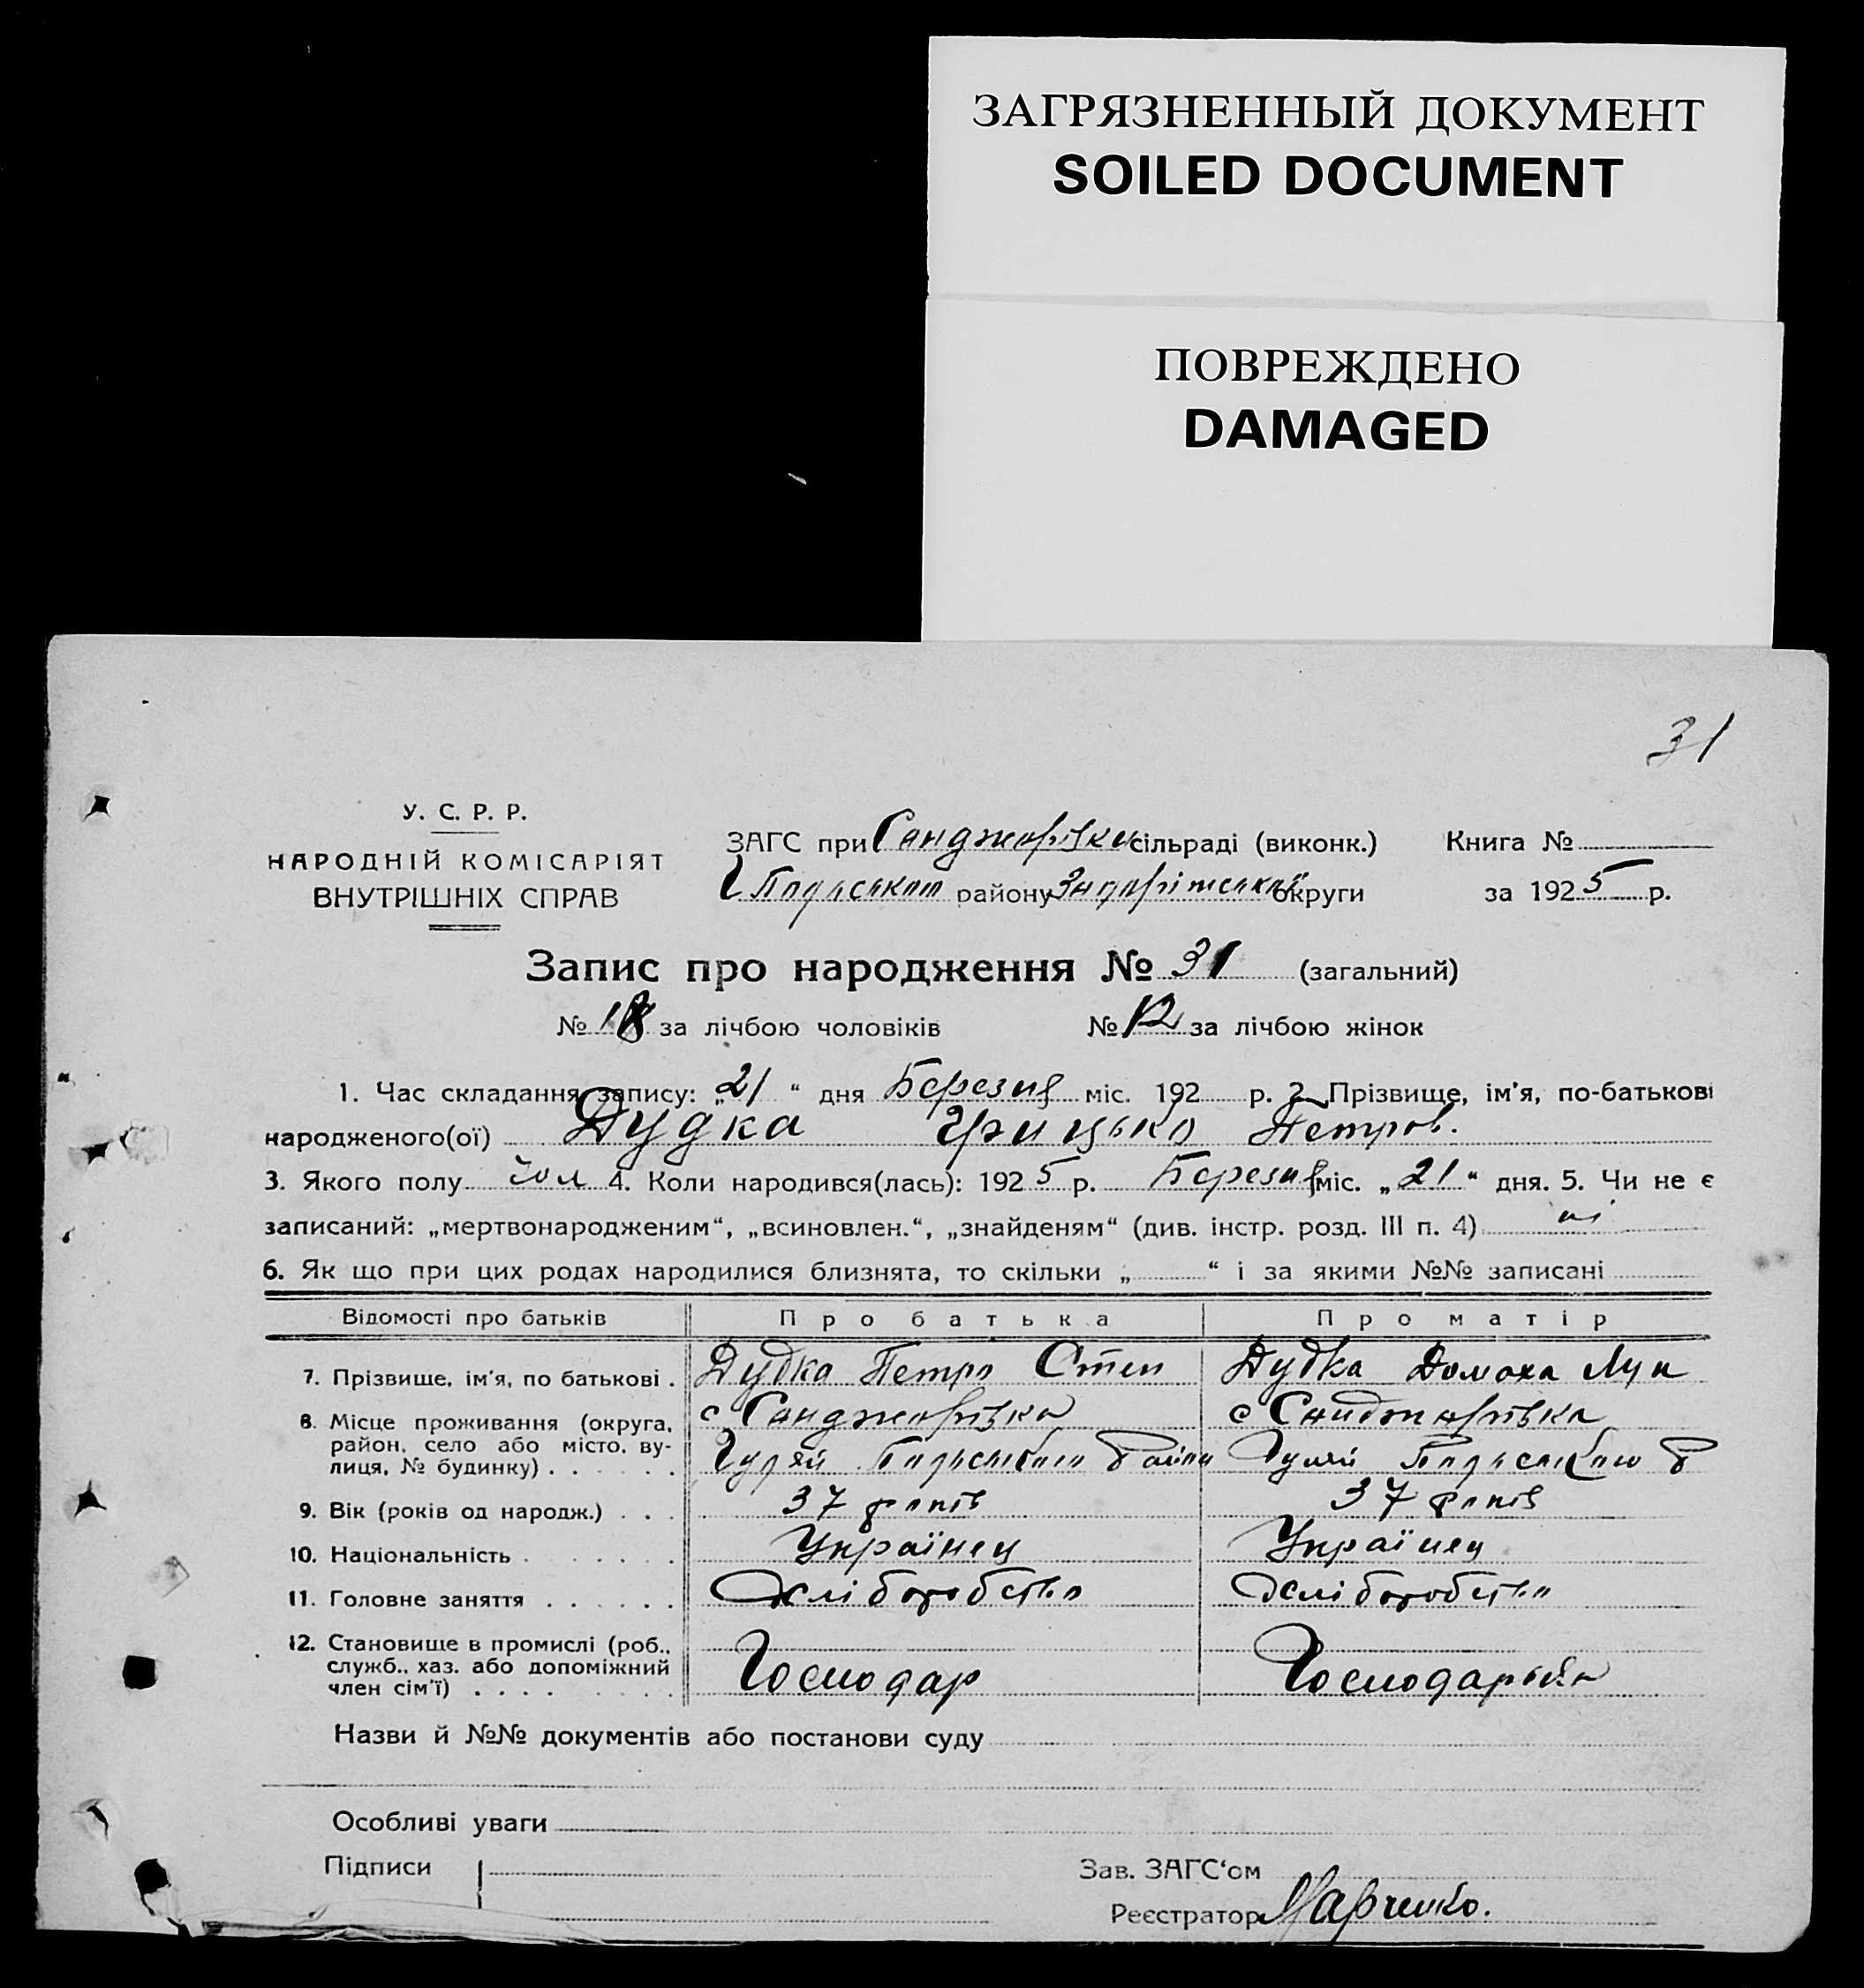 ЗАГРЯЗНЕННЫЙ ДОКУМЕНТ
SOILED DOCUMENT
ПОВРЕЖДЕНО
DAMAGED
31
У. С. Р. Р.
НАРОДНІЙ КОМІСАРІЯТ
ВНУТРІШНІХ СПРАВ
ЗАГС при Санджарівки сільраді (виконк.) Книга №
району округи за 1925 р.
Запис про народження № 31 (загальний)
№ 18 за лічбою чоловіків № 12 за лічбою жінок
1. Час складання запису: „21“ дня Березня міс. 192 р. 2. Прізвище, ім'я, по-батькові
народженого(ої) Дудка Грицько Петров.
3. Якого полу чол 4. Коли народився(лась): 1925 р. Березня міс. „21“ дня. 5. Чи не є
записаний: „мертвонародженим“, „всиновлен.“, „знайденям“ (див. інстр. розд. III п. 4) ні
6. Як що при цих родах народилися близнята, то скільки „ “ і за якими №№ записані
Відомості про батьків Про батька Про матір
7. Прізвище, ім'я, по батькові . Дудка Петро Степ Дудка Домаха Лук
8. Місце проживання (округа, район, село або місто, вулиця, № будинку) . . . . . . с Санджарівка с Санджарівка
Гуляй Польського Райну Гуляй Польського Р
9. Вік (років од народж.) . . . 37 років 37 років
10. Національність . . . . . . . Українец Українец
11. Головне заняття . . . . . . Хліборобство Хліборобство
12. Становище в промислі (роб., служб., хаз. або допоміжний член сім'ї) . . . . Господар
Назви й №№ документів або постанови суду
Особливі уваги
Підписи Зав. ЗАГС'ом
Реєстратор Марченко.